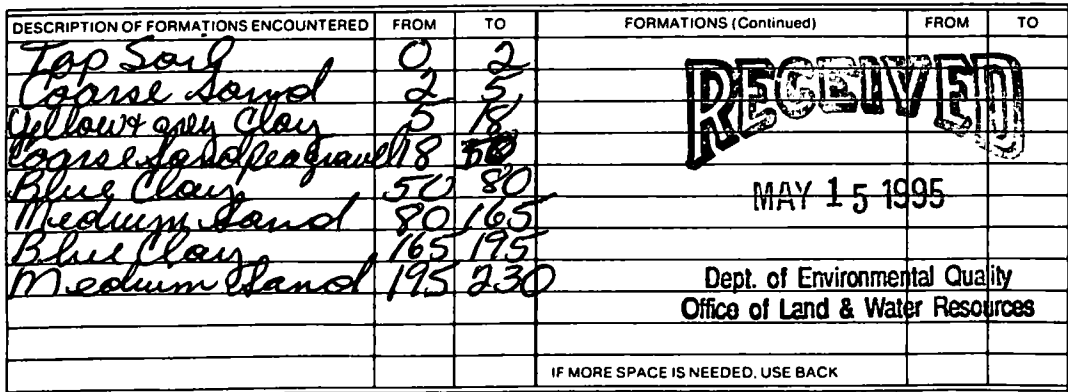 DESCRIPTION OF FORMATIONS ENCOUNTERED FROM TO FORMATIONS (Continued) FROM TO
Top Soil 0 2
Coarse Sand 2 5
Yellow & grey Clay 5 18
Coarse Sand pea gravel 18 50
Blue Clay 50 80
Medium Sand 80 165
Blue Clay 165 195
Medium Sand 195 230
RECEIVED
MAY 15 1995
Dept. of Environmental Quality
Office of Land & Water Resources
IF MORE SPACE IS NEEDED, USE BACK